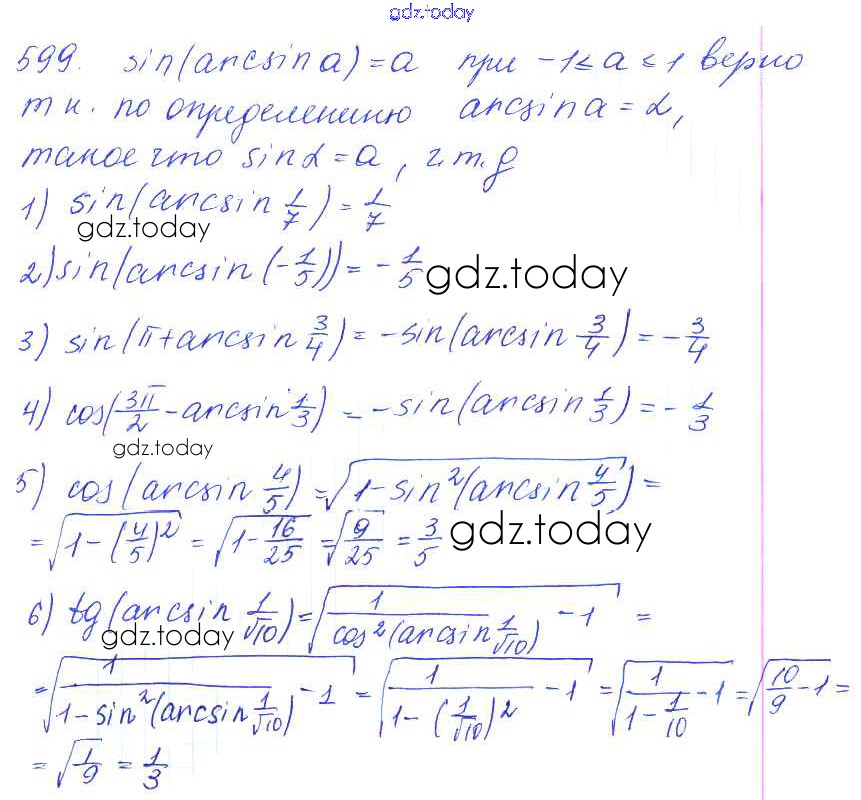 gdz.today
599. sin(arcsin a) = a при -1 ≤ a ≤ 1 верно
т к. по определению arcsin a = α,
такое что sin α = a, ч.т.д
1) sin(arcsin 1/7) = 1/7
gdz.today
2) sin(arcsin(-1/5)) = -1/5
gdz.today
3) sin(π + arcsin 3/4) = -sin(arcsin 3/4) = -3/4
4) cos(3π/2 - arcsin 1/3) = -sin(arcsin 1/3) = -1/3
gdz.today
5) cos(arcsin 4/5) = √(1 - sin²(arcsin 4/5)) =
= √(1 - (4/5)²) = √(1 - 16/25) = √(9/25) = 3/5
gdz.today
6) tg(arcsin 1/√10) = √(1/cos²(arcsin 1/√10) - 1) =
gdz.today
= √(1/(1 - sin²(arcsin 1/√10)) - 1) = √(1/(1 - (1/√10)²) - 1) = √(1/(1 - 1/10) - 1) = √(10/9 - 1) =
= √(1/9) = 1/3